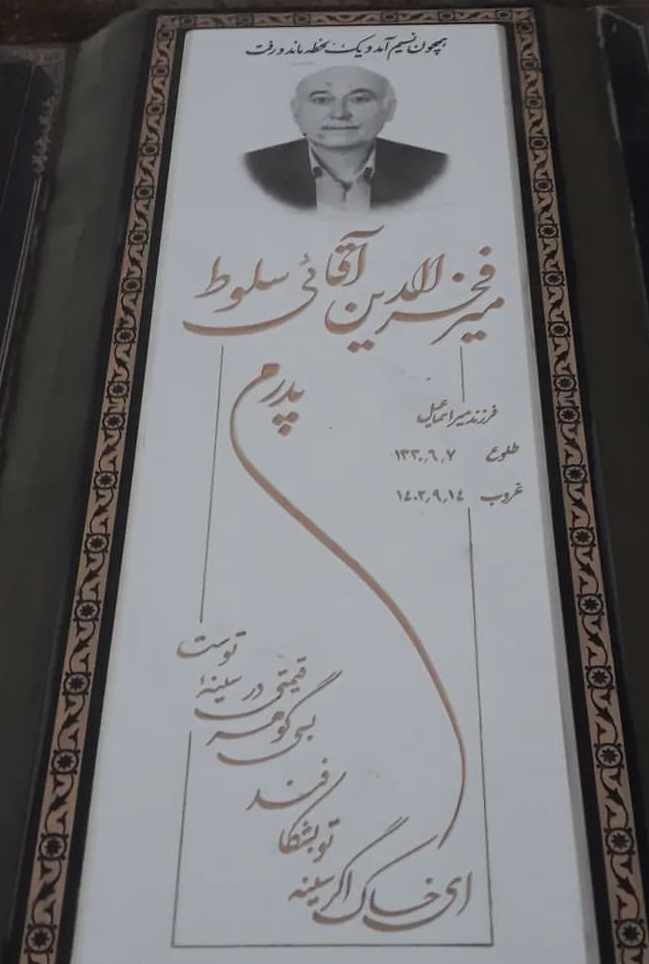 همچون نسیم آمد و یک لحظه ماند و رفت
میر فخرالدین آقائی سلوط
پدرم
فرزند میر اسماعیل
طلوع ۱۳۳۰٫۶٫۷
غروب ۱۴۰۳٫۹٫۱۴
ای خاک اگر سینه
تو بشکا
فند
بسی گوهر
قیمتی در سینهٔ
توست